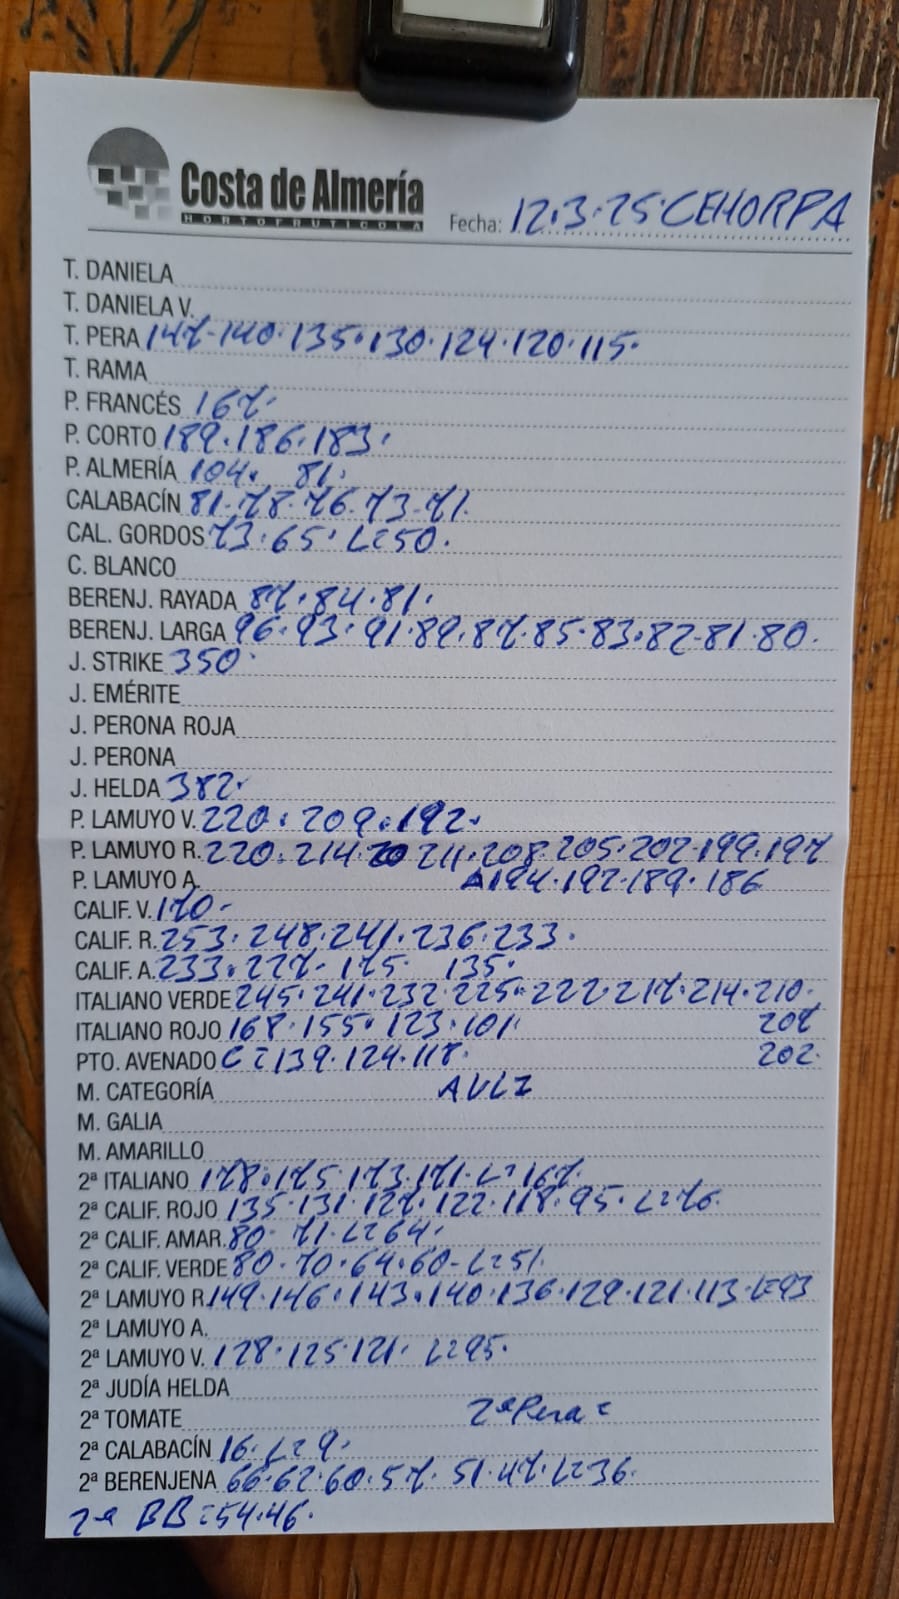 Costa de Almería
HORTOFRUTICOLA
Fecha: 12.3.25. CEHORPA
T. DANIELA
T. DANIELA V.
T. PERA 147-140.135.130.124.120.115.
T. RAMA
P. FRANCÉS 167.
P. CORTO 189.186.183.
P. ALMERÍA 104. 81.
CALABACÍN 81.78.76.73.71.
CAL. GORDOS 73.65. L=50.
C. BLANCO
BERENJ. RAYADA 87.84.81.
BERENJ. LARGA 96.93.91.89.87.85.83.82-81.80.
J. STRIKE 350.
J. EMÉRITE
J. PERONA ROJA
J. PERONA
J. HELDA 382.
P. LAMUYO V. 220.209.192.
P. LAMUYO R. 220.214. 211.208.205.202.199.197
P. LAMUYO A. 194.192.189.186
CALIF. V. 170.
CALIF. R. 253.248.241.236.233.
CALIF. A. 233.227. 175. 135.
ITALIANO VERDE 245.241.232.225.222.217.214.210.
ITALIANO ROJO 168.155.123.101. 207
PTO. AVENADO C=139.124.117. 202.
M. CATEGORÍA
M. GALIA
M. AMARILLO
2ª ITALIANO 178.175.173.171. L=167.
2ª CALIF. ROJO 135.131.127.122.118.95. L=76.
2ª CALIF. AMAR. 80. 71. L=64.
2ª CALIF. VERDE 80.70.64.60- L=51.
2ª LAMUYO R. 149.146.143.140.136.129.121.113. L=93
2ª LAMUYO A.
2ª LAMUYO V. 128.125.121. L=95.
2ª JUDÍA HELDA
2ª TOMATE 2ª Pera =
2ª CALABACÍN 16. L=9.
2ª BERENJENA 66.62.60.57. 51.47. L=36.
2ª BB=54.46.